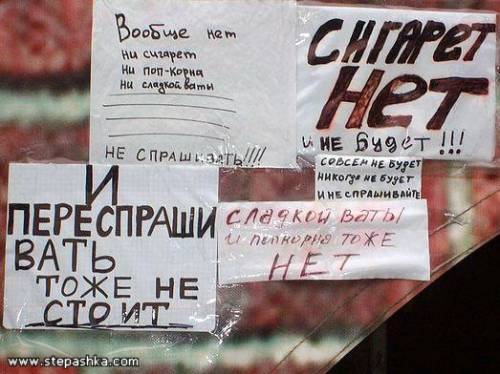 Вообще нет
ни сигарет
ни поп-корна
ни сладкой ваты
НЕ СПРАШИВАТЬ!!!!
СИГАРЕТ
НЕТ
и НЕ БудЕТ !!!
СОВСЕМ НЕ БУДЕТ
НИКОГДА НЕ БУДЕТ
И НЕ СПРАШИВАЙТЕ
И
ПЕРЕСПРАШИ
ВАТЬ
ТОЖЕ НЕ
СТОИТ
СЛАДКОЙ ВАТЫ
и попкорна тоже
НЕТ
www.stepashka.com